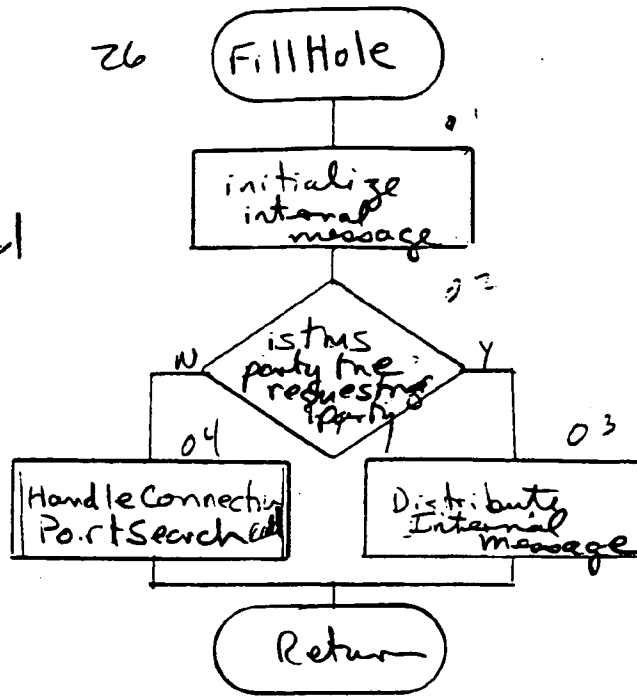 26
FillHole
initialize
internal
message
is this
party the
requesting
party
N
Y
04
03
Handle Connection
Port Search
Distribute
Internal
message
Return